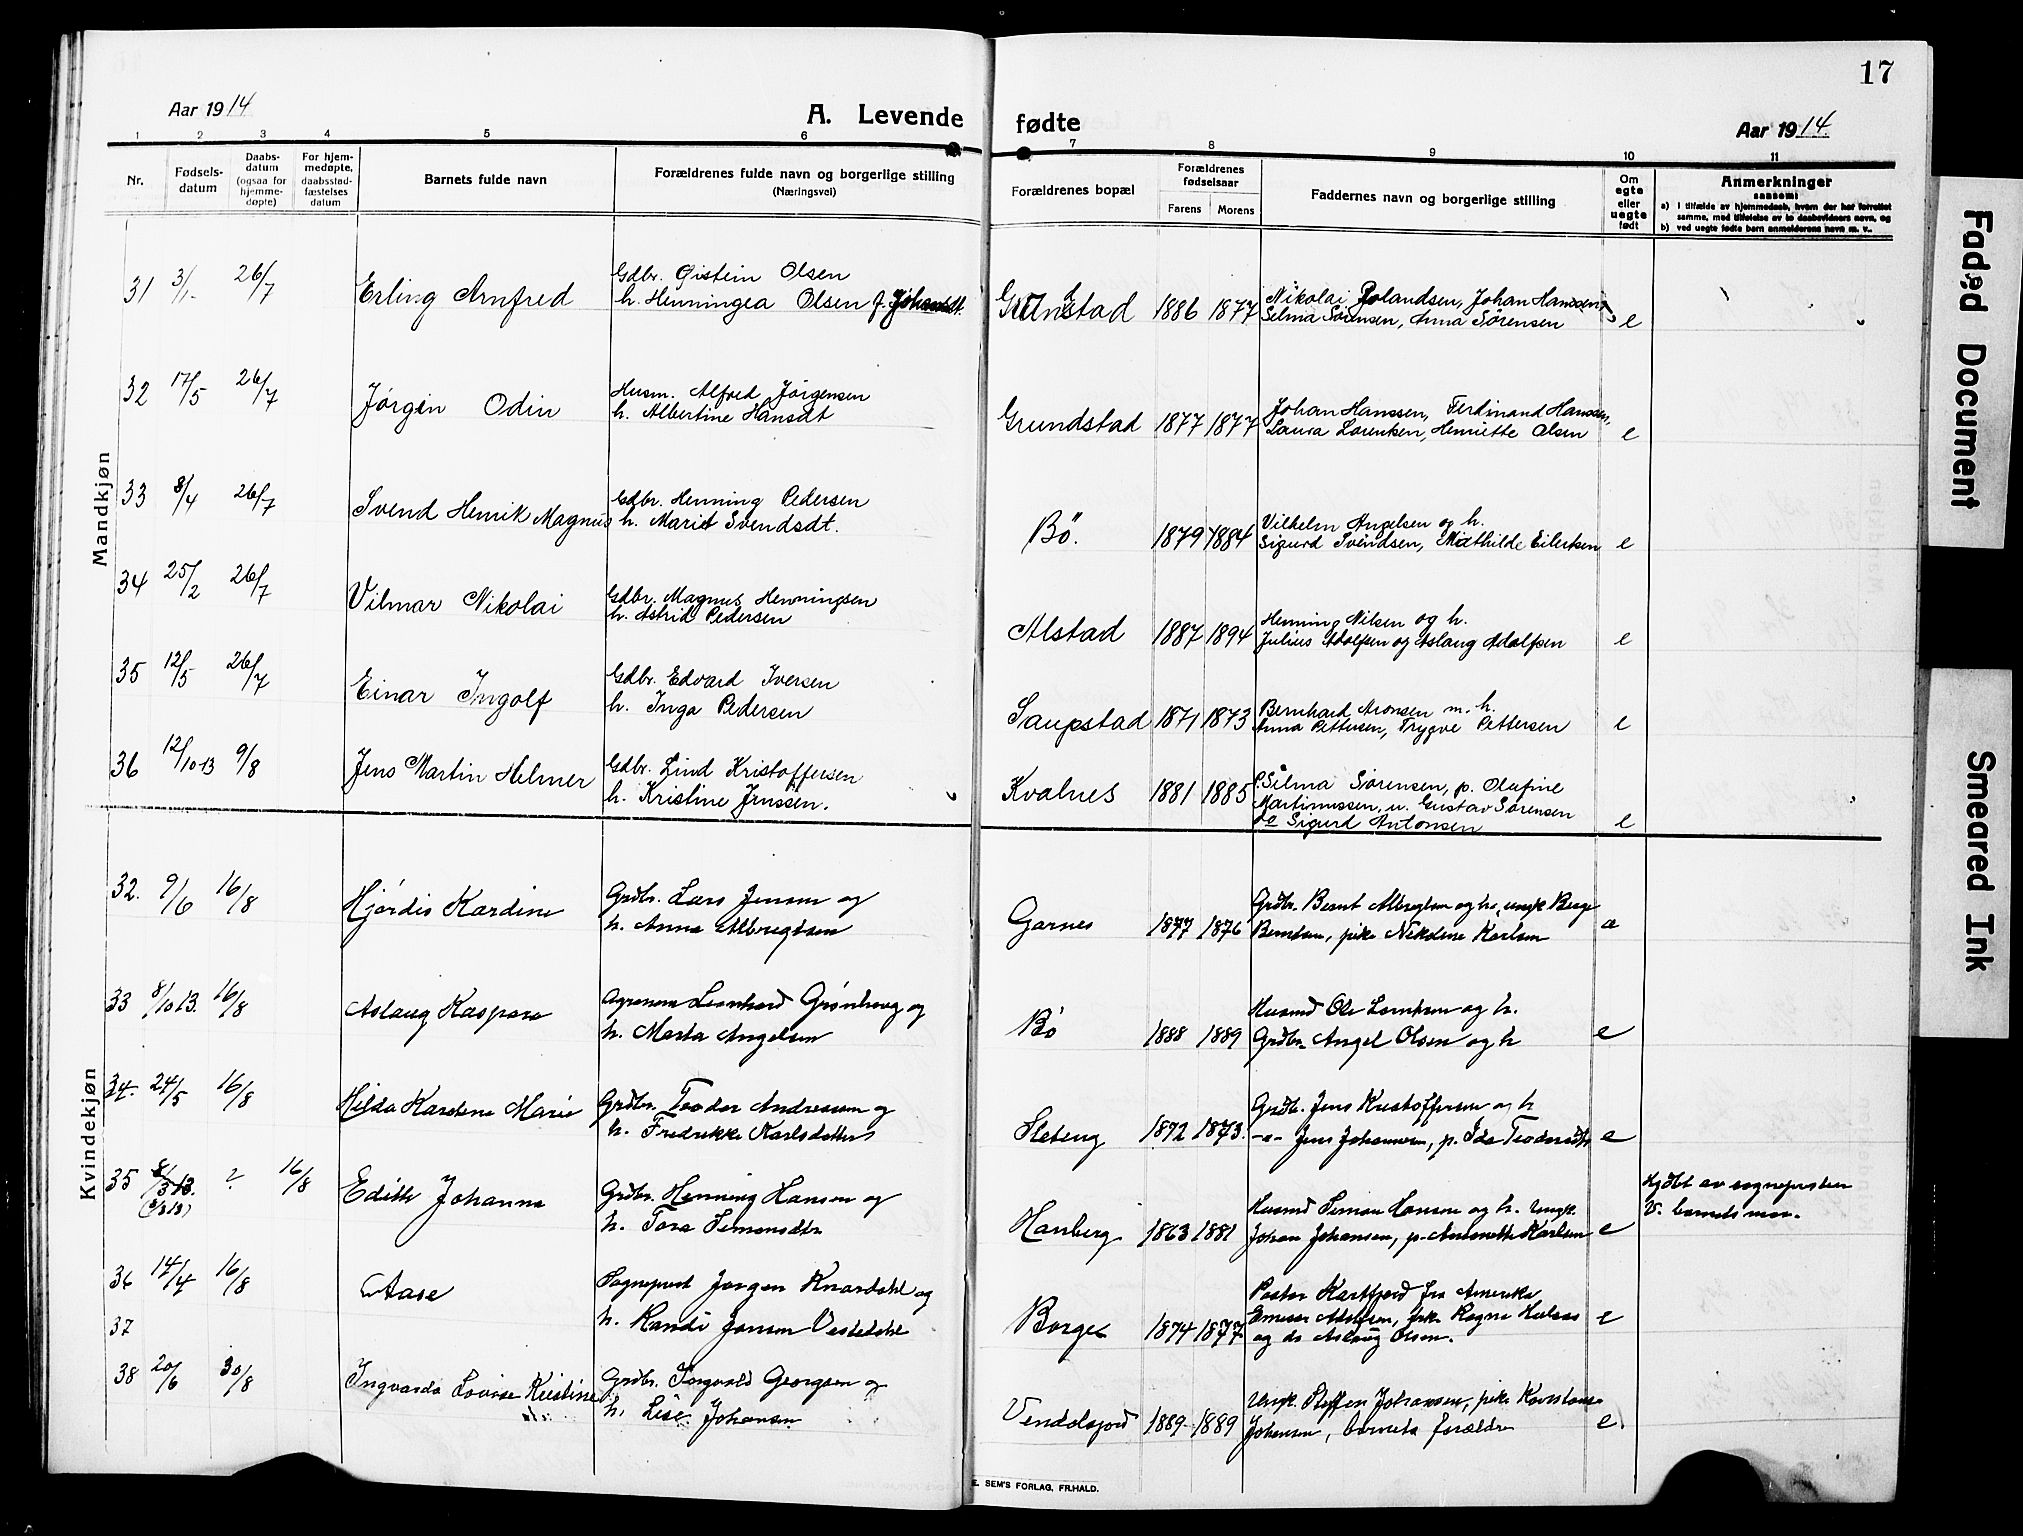 17
Aar 1914
A. Levende fødte
Aar 1914.
1 2 3 4 5 6 7 8 9 10 11
Nr.
Fødsels-
datum
Daabs-
datum
(ogsaa for
hjemme-
døpte)
For hjem-
medøpte,
daabsstad-
fæstelses
datum
Barnets fulde navn
Forældrenes fulde navn og borgerlige stilling
(Næringsvei)
Forældrenes bopæl
Forældrenes
fødselsaar
Farens Morens
Faddernes navn og borgerlige stilling
Om
egte
eller
uegte
født
Anmerkninger
saasom:
a) i tilfælde av hjemmedaab, hvem der har forrettet
samme, med tilføielse av to daabsvidners navn, og
b) ved uegte fødte barn anmelderens navn m. v..
Mandkjøn
31 3/1 26/7 Erling Arnfred
Gdbr. Øistein Olsen
h. Henningea Olsen f. Johansdt.
1886 1877
Nikolai Rolandsen, Johan Hanssen,
Selma Sørensen, Anna Sørensen
e
32 17/5 26/7 Jørgen Odin
Husm. Alfred Jørgensen
h. Albertine Hansdt
Grundstad 1877 1877
Johan Hanssen, Ferdinand Hanssen,
Laura Lorentzen, Henriette Olsen
e
33 8/4 26/7 Svend Henrik Magnus
Gdbr. Henning Pedersen
h. Marie Svendsdt.
Bö. 1879 1884
Vilhelm Angelsen og h.
Sigurd Svendsen, Mathilde Eilertsen
e
34 25/2 26/7 Vilmar Nikolai
Gdbr. Magnus Henningsen
h. Astrid Pedersen
Alstad 1887 1894
Henning Nilsen og h.
Julius Adolfsen og Aslaug Adolfsen
e
35 12/5 26/7 Einar Ingolf
Gdbr. Edvard Iversen
h. Inga Pedersen
Saupstad 1871 1873
Bernhard Aronsen m. h.
Anna Pettersen, Trygve Pettersen
e
36 12/10 13 9/8 Jens Martin Helmer
Gdbr. Lind Kristoffersen
h. Kristine Jenssen.
Kvalnes 1881 1885
p. Selma Sørensen, p. Olufine
Martinussen, u. Gustav Sørensen
do Sigurd Antonsen
e
Kvindekjøn
32. 9/6 16/8 Hjördis Kardine
Grdbr. Lars Jensen og
h. Anna Albregtsen
Garnes 1877 1876
Grdbr. Bernt Albregtsen og h., ungk Berge
Berntsen, pike Nikoline Karlsen
33 8/10 13. 16/8 Aslaug Kaspara
Agronom Leonhard Grønhaug og
h. Marta Angelsen
Bö 1888 1889
Husmd Ole Lorntsen og h.
Grdbr Angel Olsen og h
e
34. 24/5 16/8 Hilda Kardine Marie
Grdbr. Teodor Andreassen og
h. Fredrikke Karlsdatter
1872 1873.
Grdb. Jens Kristoffersen og h
-"- Jens Johannesen, p. Ida Teodorsdtr
e
35 8/3 13. (8/3 13) ? 16/8 Edith Johanna
Grdbr. Henning Hansen og
h. Tora Simonsdtr
Hanberg 1863 1881
Husmd Simon Hansen og h. Ungk.
Johan Johansen, p. Antonette Karlsen
e
Hjdbt av sognepresten
V. barnets mor.
36 14/4 16/8 Aase
Sogneprest Jørgen Knardahl og
h. Randi Jonsen Vesledahl
Borge 1874 1877
Pastor Kartfjord fra Amerika
Adolfsen, frk. Ragna
og do Aslaug Olsen.
e
37
38 20/6 30/8 Ingvarda Lovise Kristine
Grdbr. Ingvald Georgsen og
h. Lise Johansen
Vendalsjord 1889 1889
Ungk. Steffen Johansen, pike Konstanse
Johansen, barnets forældre
e.
E. SEM'S FORLAG, FR.HALD.
Faded Document
Smeared Ink